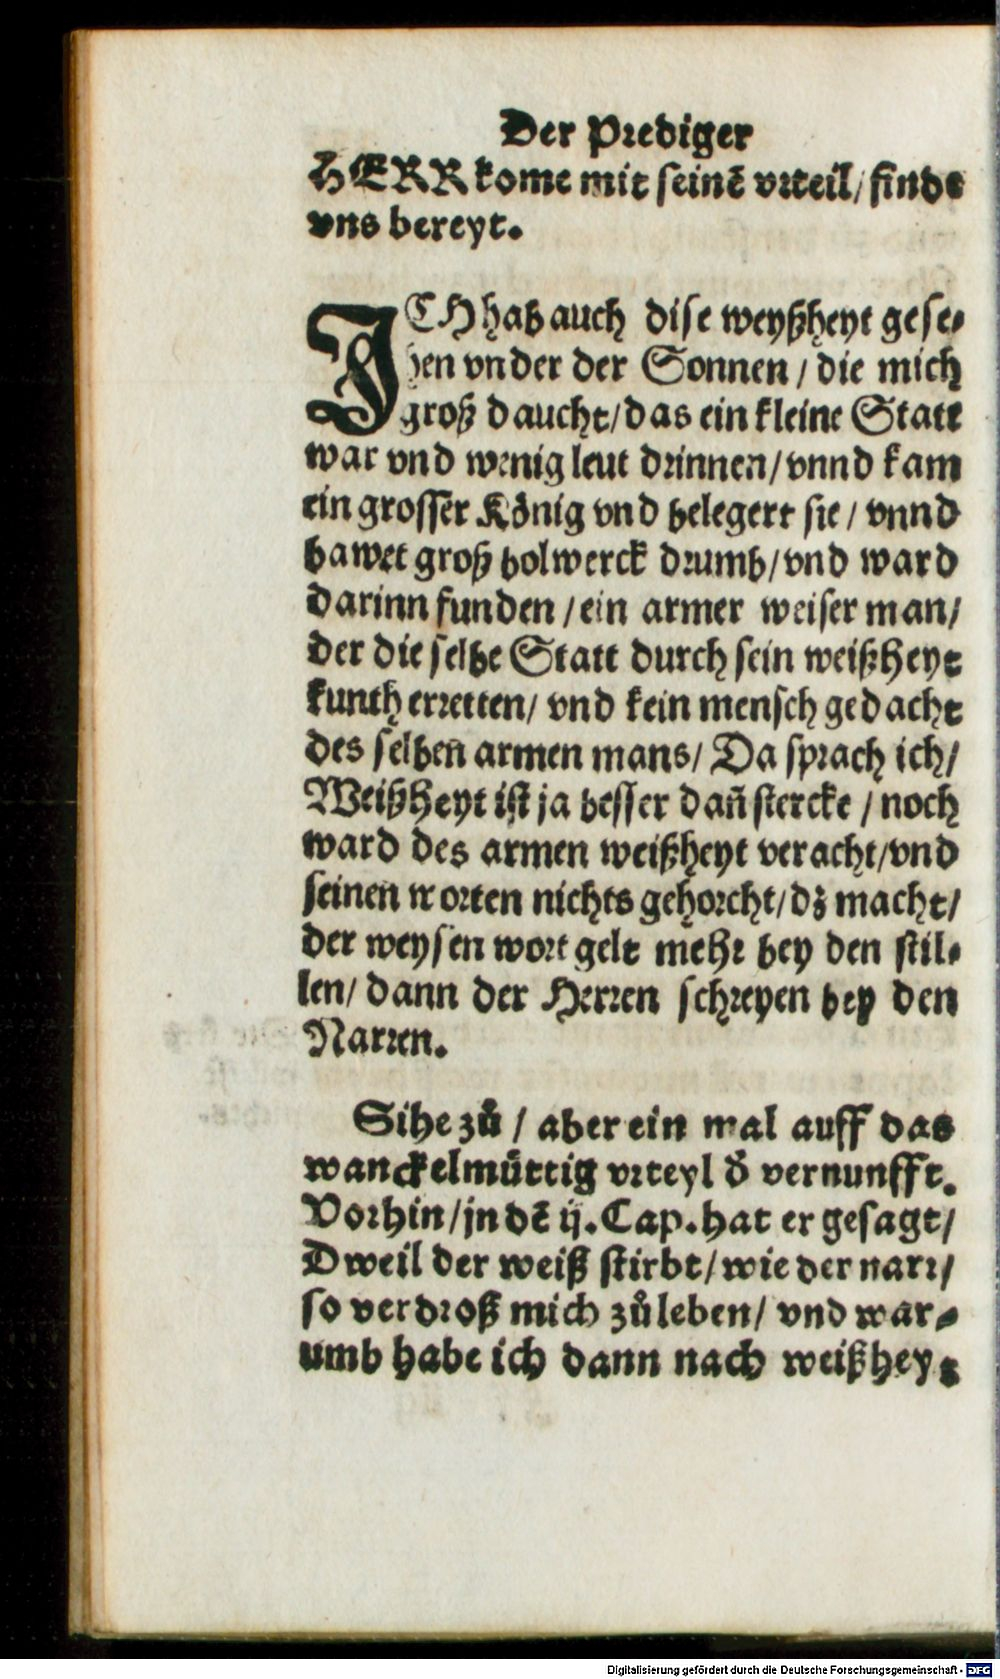 Der Prediger
HERR kome mit seinē vrteil/ finde
vns bereyt.
ICH hab auch dise weyßheyt gese-
hen vnder der Sonnen / die mich
groß daucht/das ein kleine Statt
war vnd wenig leut drinnen/vnnd kam
ein grosser König vnd belegert sie / vnnd
bawet groß bolwerck drumb/vnd ward
darinn funden /ein armer weiser man/
der die selbe Statt durch sein weißheyt
kunth erretten/ vnd kein mensch gedacht
des selbeñ armen mans/ Da sprach ich/
Weißheyt ist ja besser dañ stercke / noch
ward des armen weißheyt veracht/vnd
seinen worten nichts gehorcht/dz macht/
der weysen wort gelt mehr bey den stil-
len/ dann der Herren schreyen bey den
Narren.
Sihe zů / aber ein mal auff das
wanckelmüttig vrteyl d̄ vernunfft.
Vorhin/jn dē ij. Cap. hat er gesagt/
Dweil der weiß stirbt/wie der narr/
so verdroß mich zů leben/ vnd war-
umb habe ich dann nach weißheyt
Digitalisierung gefördert durch die Deutsche Forschungsgemeinschaft - DFG